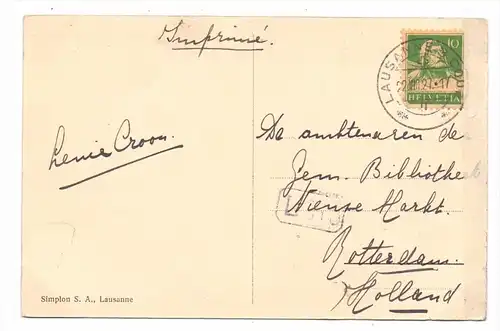 Imprimé.
10
HELVETIA
LAUSANNE
Lenie Croon.
De ambtenaren de
Gem. Bibliothe
Nieuwe Markt.
Rotterdam.
Holland
Simplon S. A., Lausanne